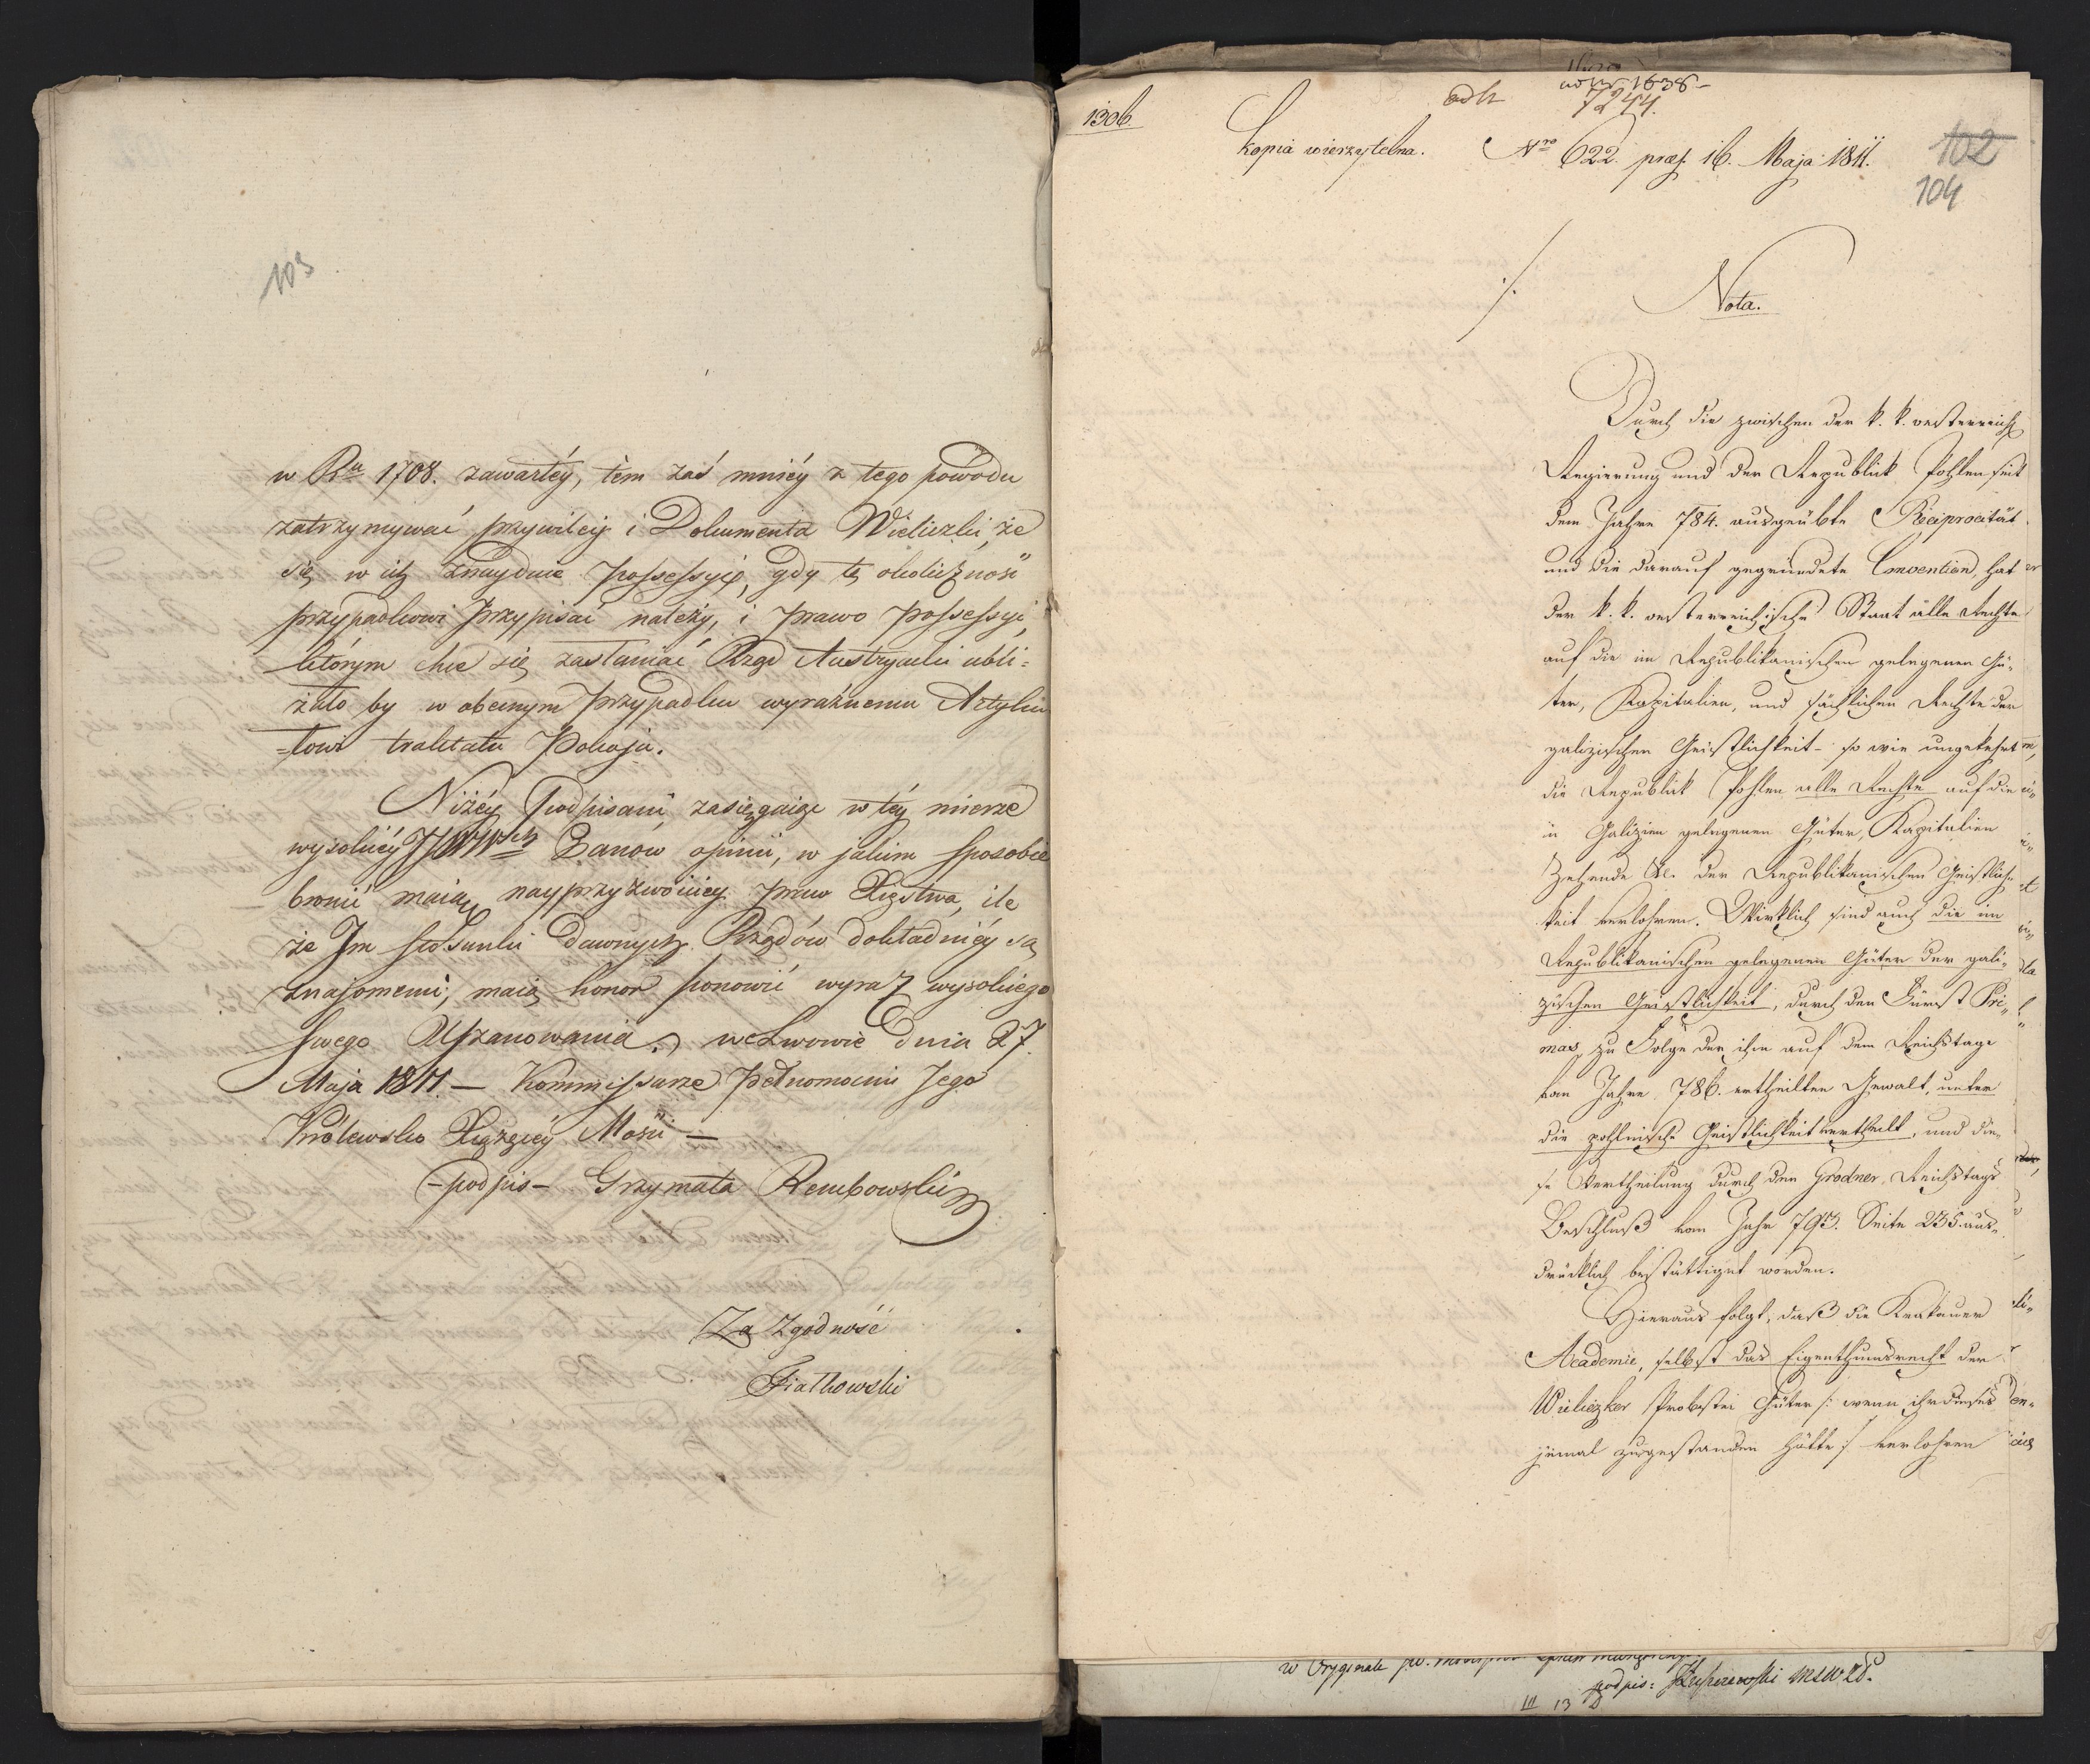 103
w Ru 1708. zawartéy, tém zaś mniéy z tego powodu
zatrzymywać przywileje i Dokumenta Wieliczki, że
się w ich znayduie possessyi, gdy tę okoliczność
przypadkowi przypisać należy, i prawo possessyi,
którym chce się zasłaniać Rząd Austryacki ubli=
żało by w obecnym przypadku wyraźnemu Artyku
=łowi traktatu Pokoju.
Niżéy podpisani, zasięgaiąc w téy mierze
wysokiéy JWWPch Panów opinii, w jakim sposobie
bronić maią nayprzyzwoiciey praw Xięstwa, ile
że Im stosunki dawnych Rządów dokładniéy są
znajomemi, maią honor ponowić wyraz wysokiego
swego Uszanowania. we Lwowie Dnia 27.
Maja 1811. — Kommissarze pełnomocni Jego
Królewsko Xiążęcéy Mości —
-podpis- Grzymała Rembowski
Za Zgodność
Fiałkowski
1306.
ad Nr 1638-
7244.
Kopia wierzytelna. Nro 622. præs. 16. Maja 1811.
102
104
Nota.
Durch die zwischen der k. k. oesterreich
Regierung und der Republik Pohlen seit
dem Jahre 784. ausgeübte Reciprocität
und die darauf gegründete Convention, hat
der k. k. oesterreichische Staat alle Rechte
auf die im Republikanischen gelegenen Gü-
ter, Kapitalien, und sächlichen Rechte der
galizischen Geistlichkeit – so wie umgekehrt
die Republik Pohlen alle Rechte auf die
in Galizien gelegenen Güter, Kapitalien
Zehende &c. der Republikanischen Geistlich-
keit verlohren. Wirklich sind auch die im
Republikanischen gelegenen Güter der gali-
zischen Geistlichkeit, durch den Fürst Pri-
mas, zu Folge der ihm auf dem Reichstage
vom Jahre 786. ertheilten Gewalt, unter
die pohlnische Geistlichkeit vertheilt, und die-
se Vertheilung durch den Grodner Reichstags
Beschluß vom Jahr 793. Seite 235. aus-
drücklich bestättiget worden.
Hieraus folgt, daß die Krakauer
Academie, selbst das Eigenthumsrecht der
Wieliczker Probstei Güter /: wenn ihr dieses
jemal zugestanden hätte :/ verlohren
w Oryginale
podpis:
III 13